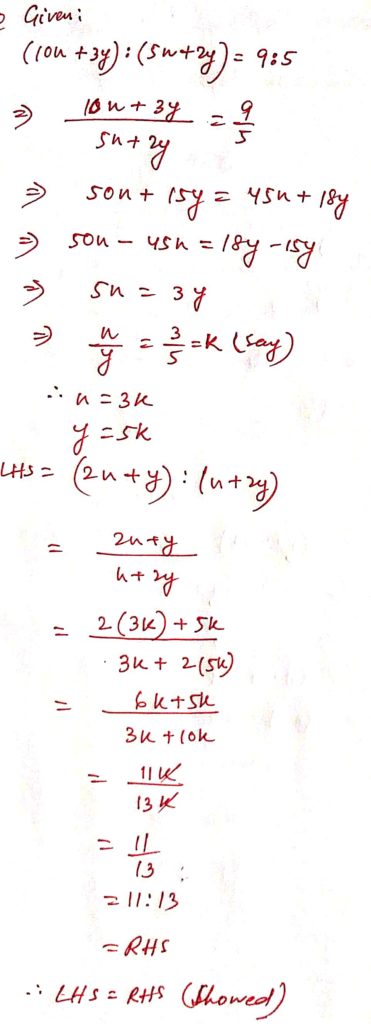 Given:
(10x + 3y) : (5x + 2y) = 9:5
⇒ (10x + 3y)/(5x + 2y) = 9/5
⇒ 50x + 15y = 45x + 18y
⇒ 50x - 45x = 18y - 15y
⇒ 5x = 3y
⇒ x/y = 3/5 = K (say)
∴ x = 3k
y = 5k
LHS = (2x + y) : (x + 2y)
= (2x + y)/(x + 2y)
= (2(3k) + 5k)/(3k + 2(5k))
= (6k + 5k)/(3k + 10k)
= 11k/13k
= 11/13
= 11:13
= RHS
∴ LHS = RHS (Showed)